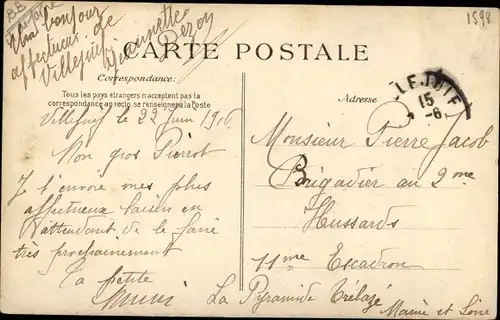 Un bonjour
affectueux de
Villejuif
Jeannette
1598
CARTE POSTALE
Correspondance:
Tous les pays étrangers n'acceptent pas la
correspondance au recto, se renseigner à la Poste
Adresse
LEJUIF
15
-6
Villejuif le 22 Juin 1916
Mon gros Pierrot
Je t'envoie mes plus
affectueux baisers en
attendant de le faire
très prochainement
Ta petite
Mimi
Monsieur Pierre Jacob
Brigadier au 2me
Hussards
11me Escadron
La Pyramide Trélazé
Maine et Loire